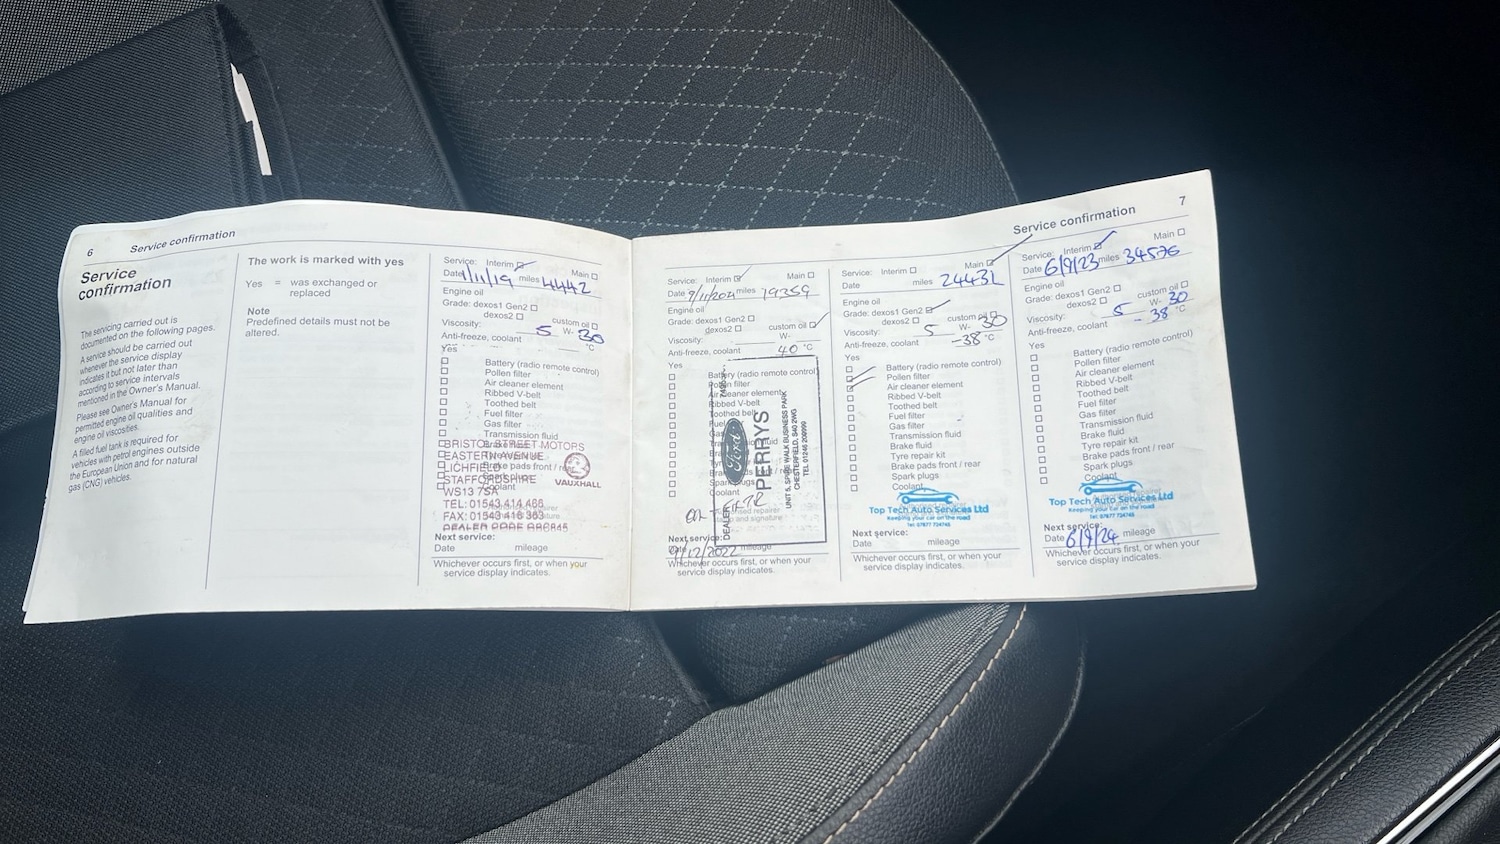 6 Service confirmation
Service
confirmation
The servicing carried out is
documented on the following pages.
A service should be carried out
whenever the service display
indicates it but not later than
according to service intervals
mentioned in the Owner's Manual.
Please see Owner's Manual for
permitted engine oil qualities and
engine oil viscosities.
A filled fuel tank is required for
vehicles with petrol engines outside
the European Union and for natural
gas (CNG) vehicles.
The work is marked with yes
Yes = was exchanged or
replaced
Note
Predefined details must not be
altered.
Service: Interim Main
Date 1/11/19 miles 4442
Engine oil
Grade: dexos1 Gen2
dexos2 custom oil
Viscosity: 5 W- 30
Anti-freeze, coolant °C
Yes
Battery (radio remote control)
Pollen filter
Air cleaner element
Ribbed V-belt
Toothed belt
Fuel filter
Gas filter
Transmission fluid
BRISTOL STREET MOTORS
EASTERN AVENUE
LICHFIELD
STAFFORDSHIRE
WS13 7SA
TEL: 01543 414 466
FAX: 01543 416 383
VAUXHALL
Brake pads front / rear
Coolant
Next service:
Date mileage
Whichever occurs first, or when your
service display indicates.
Service confirmation 7
Service: Interim Main
Date 9/11/2021 miles 19359
Engine oil
Grade: dexos1 Gen2
dexos2 custom oil
Viscosity: W-
Anti-freeze, coolant 40 °C
Yes
Battery (radio remote control)
Pollen filter
Air cleaner element
Ribbed V-belt
Toothed belt
Ford
PERRYS
UNIT 6, SPIRE WALK BUSINESS PARK
CHESTERFIELD, S40 2WG
TEL 01246 209999
DEALER
Spark plugs
Coolant
Next service:
Date 9/12/2022 mileage
Whichever occurs first, or when your
service display indicates.
Service: Interim Main
Date miles 24432
Engine oil
Grade: dexos1 Gen2
dexos2 custom oil
Viscosity: 5 W- 30
Anti-freeze, coolant -38 °C
Yes
Battery (radio remote control)
Pollen filter
Air cleaner element
Ribbed V-belt
Toothed belt
Fuel filter
Gas filter
Transmission fluid
Brake fluid
Tyre repair kit
Brake pads front / rear
Spark plugs
Coolant
Top Tech Auto Services Ltd
Keeping your car on the road
Tel: 07877 724745
Next service:
Date mileage
Whichever occurs first, or when your
service display indicates.
Service: Interim Main
Date 6/9/23 miles 34576
Engine oil
Grade: dexos1 Gen2
dexos2 custom oil
Viscosity: 5 W- 30
Anti-freeze, coolant -38 °C
Yes
Battery (radio remote control)
Pollen filter
Air cleaner element
Ribbed V-belt
Toothed belt
Fuel filter
Gas filter
Transmission fluid
Brake fluid
Tyre repair kit
Brake pads front / rear
Spark plugs
Coolant
Top Tech Auto Services Ltd
Keeping your car on the road
Tel: 07877 724745
Next service:
Date 6/9/24 mileage
Whichever occurs first, or when your
service display indicates.